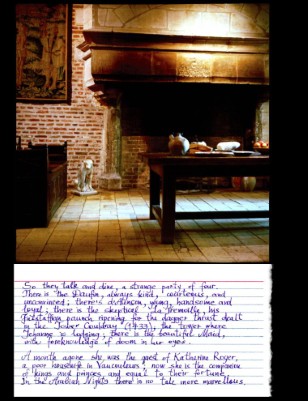 So they talk and dine, a strange party of four.
There is the Dauphin, always kind, courteous, and
unconvinced; there's d'Alençon, young, handsome and
loyal; there is the skeptical La Tremoille, his
Falstaffian paunch ripening for the dagger thrust dealt
in the Tower Coudray (1433), the tower where
Jehanne is lodging; there is the beautiful Maid,
with foreknowledge of doom in her eyes.
A month agone she was the guest of Katherine Royer,
a poor housewife in Vaucouleurs; now she is the companion
of kings and princes and equal to their fortune.
In the Arabian Nights there is no tale more marvellous.